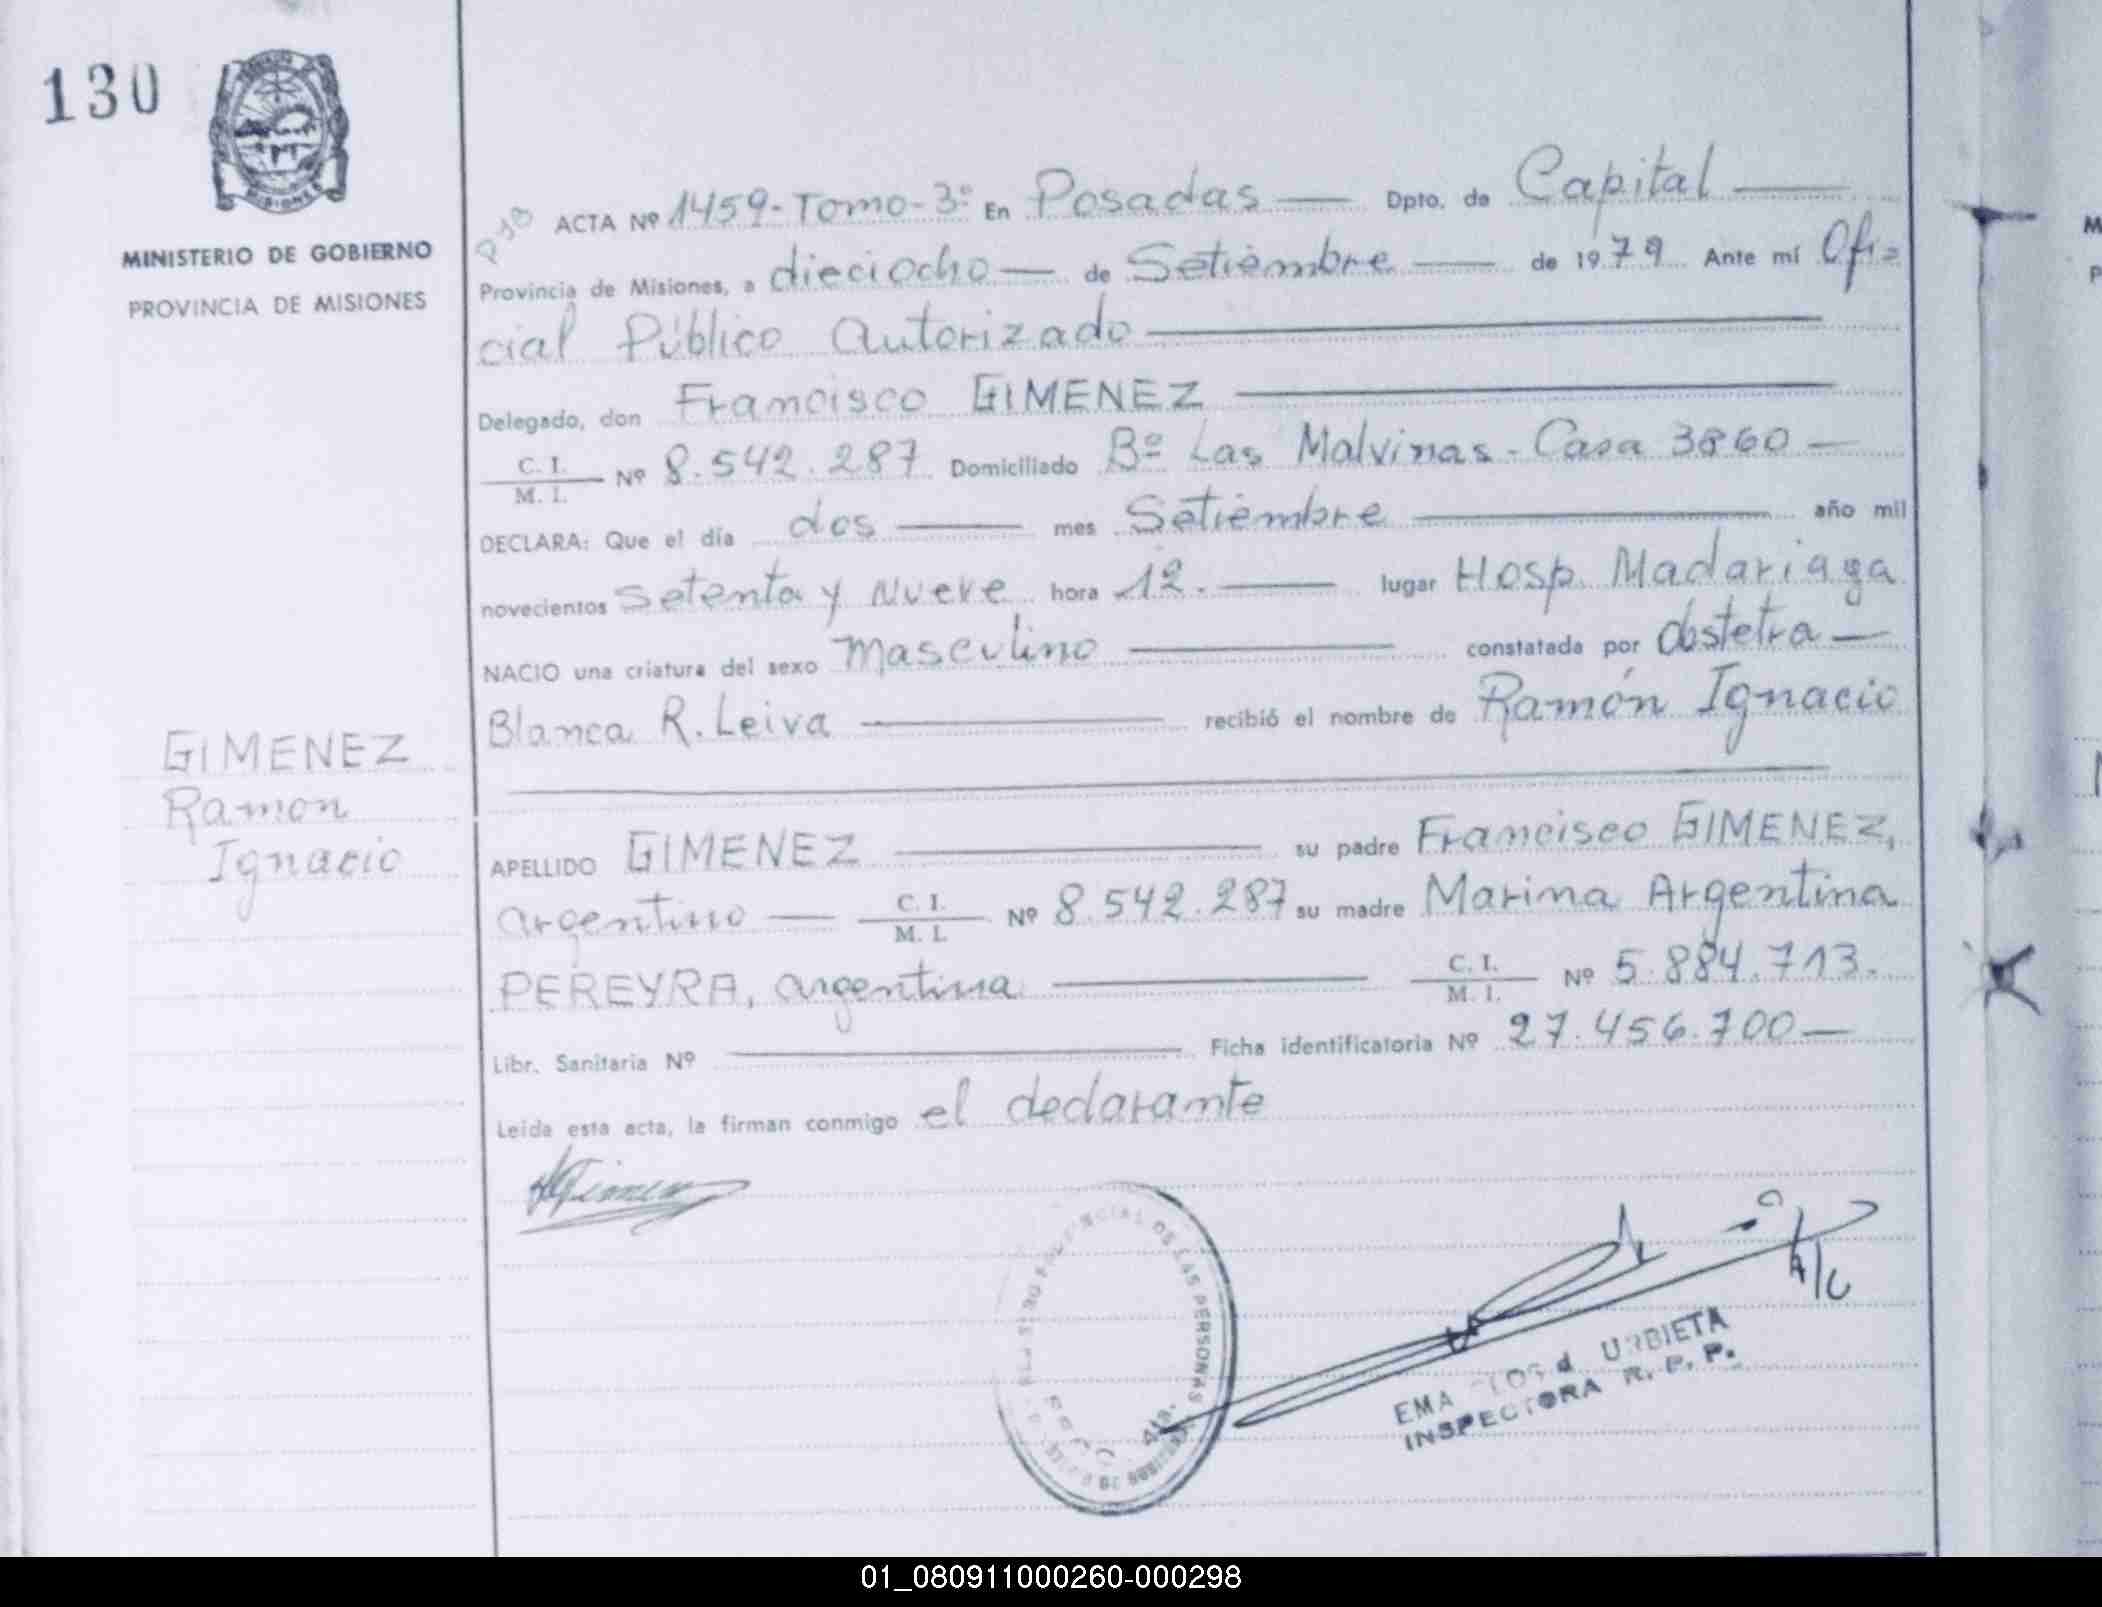 130
MISIONES
MINISTERIO DE GOBIERNO
PROVINCIA DE MISIONES
GIMENEZ
Ramon
Ignacio
ACTA Nº 1459-Tomo-3º En Posadas — Dpto. de Capital —
Provincia de Misiones, a dieciocho — de Setiembre — de 1979 Ante mí Ofi=
cial Público Autorizado —
Delegado, don Francisco GIMENEZ —
C. I.
M. I. Nº 8.542.287 Domiciliado Bº Las Malvinas - Casa 3860 —
DECLARA: Que el día dos — mes Setiembre — año mil
novecientos Setenta y Nueve hora 12. — lugar Hosp. Madariaga
NACIO una criatura del sexo Masculino — constatada por Obstetra —
Blanca R. Leiva — recibió el nombre de Ramón Ignacio
APELLIDO GIMENEZ — su padre Francisco GIMENEZ,
argentino — C. I.
M. I. Nº 8.542.287 su madre Marina Argentina
PEREYRA, argentina — C. I.
M. I. Nº 5.884.713.
Libr. Sanitaria Nº — Ficha identificatoria Nº 27.456.700 —
Leída esta acta, la firman conmigo el declarante
DE LAS PERSONAS
4ta.
A/C
EMA URBIETA
INSPECTORA R. P. P.
01_080911000260-000298